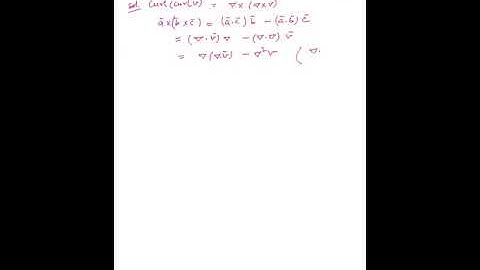 sol Curl(Curl(v̄)) = ∇×(∇×v̄)
ā×(b̄×c̄) = (ā·c̄) b̄ − (ā·b̄) c̄
= (∇·v̄) ∇ − (∇·∇) v̄
= ∇(∇·v̄) − ∇²v̄ ( ∇·